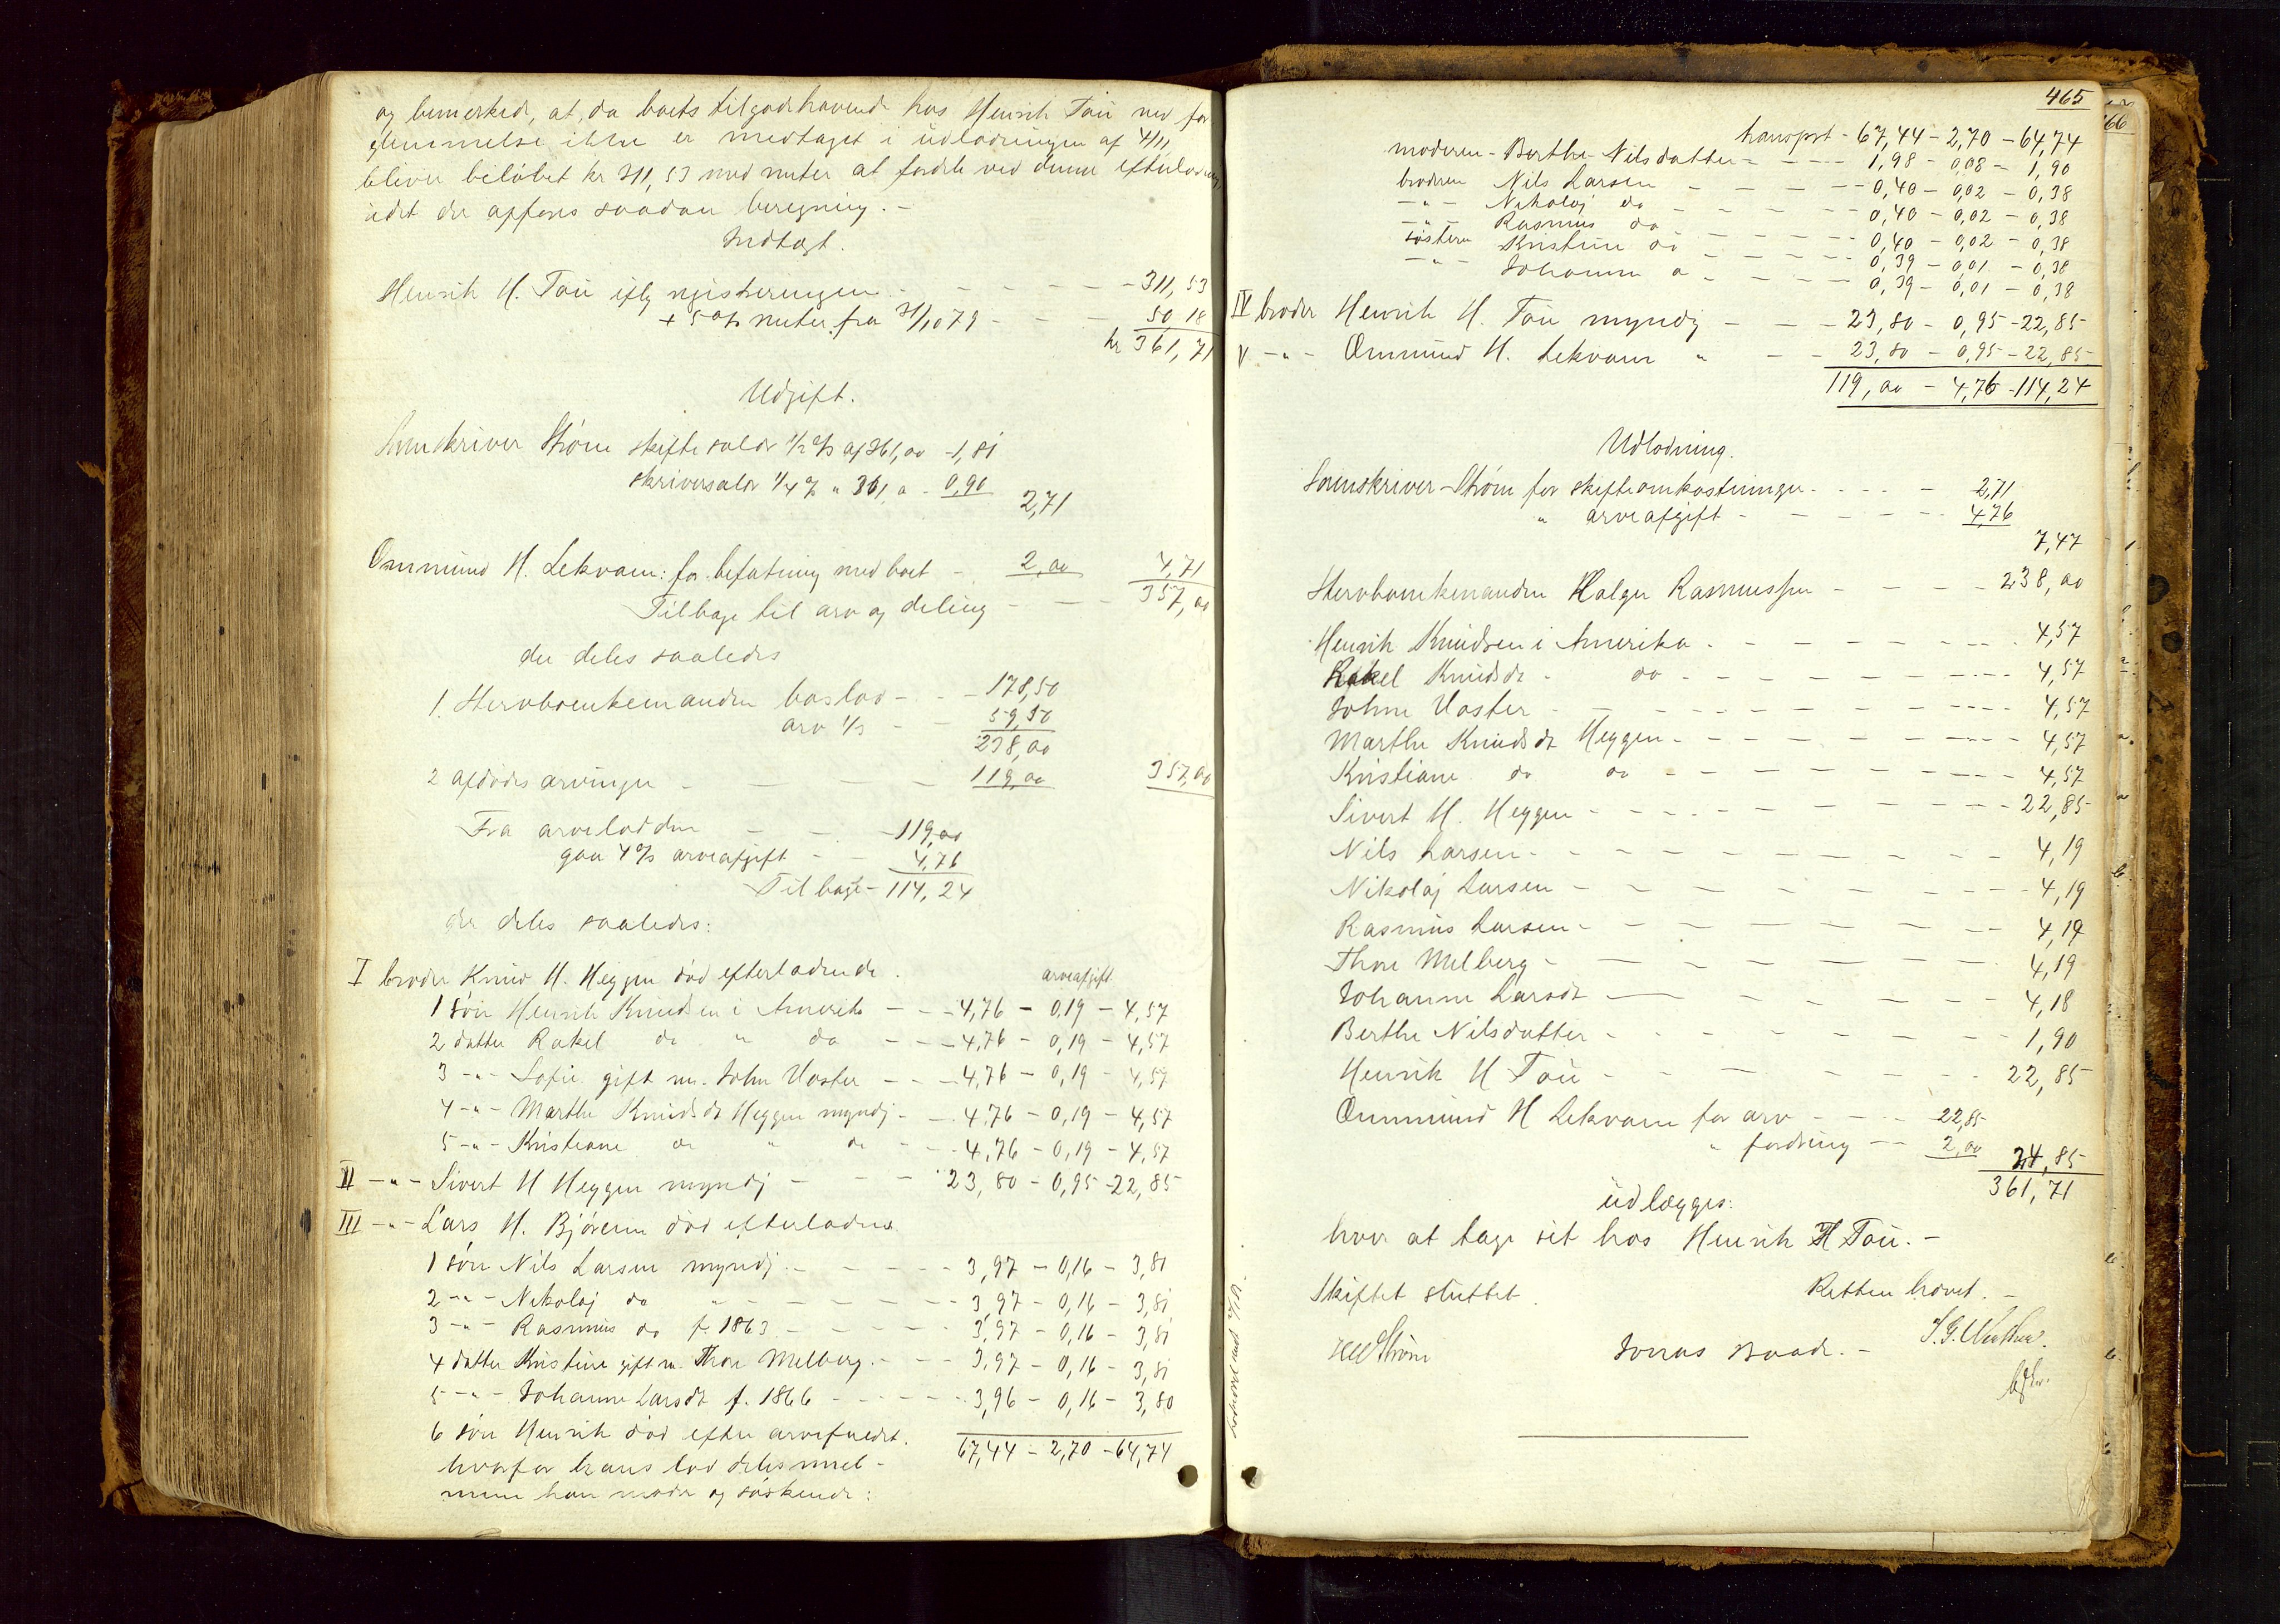 og bemerked, at, da boets tilgodehavende hos Henrik Tou ved for
glemmelse ikke er medtaget i udlodningen af 4/11
bliver beløbet kr 311,53 med renter at fordele ved denne efterlodning,
idet der opføres saadan beregning. -
Indtægt.
Henrik H. Tou iflg registreringen - - - - - - 311,53
+ 5 % renter fra 31/10 79 - - - 50,18
kr 361,71
Udgift.
Sorenskriver Strøm skiftesalær 1/2 % af 361,00 - 1,81
skriversalær 1/4 % " 361 " - 0,90
2,71
Ommund H. Lekvam: for befatning med boet - 2,00 4,71
Tilbage til arv og deling - - - 357,00
der deles saaledes
1. Stervboenkemanden boslod - - - 178,50
arv 1/3 - - 59,50
238,00
2 afdødes arvinger - - - - 119,00 357,00
Fra arvelodden - - - 119,00
gaa 4 % arveafgift - - 4,76
Tilbage - 114,24
der deles saaledes:
I broder Knud H. Heggen død efterladende. arveafgift
1 søn Henrik Knudsen i Amerika - - - 4,76 - 0,19 - 4,57
2 datter Rakel do " do - - - 4,76 - 0,19 - 4,57
3 -"- Sofie gift m. John Vaster - - - 4,76 - 0,19 - 4,57
4 -"- Marthe Knudsdt Heggen myndig - - 4,76 - 0,19 - 4,57
5 -"- Kristiane do " do - - 4,76 - 0,19 - 4,57
II -"- Sivert H Heggen myndig - - - 23,80 - 0,95 - 22,85
III -"- Lars H. Bjøreim død efterladende
1 søn Nils Larsen myndig - - - - - 3,97 - 0,16 - 3,81
2 -"- Nikolaj do " - - - - - 3,97 - 0,16 - 3,81
3 -"- Rasmus do f. 1863 - - - - - 3,97 - 0,16 - 3,81
4 datter Kristine gift m. Thore Melberg. - - - 3,97 - 0,16 - 3,81
5 -"- Johanne Larsdt f. 1866 - - - - - 3,96 - 0,16 - 3,80
6 søn Henrik død efter arvefaldet. 67,44 - 2,70 - 64,74
hvorfor hans lod deles mel-
mem hans moder og søskende:
465
transport - 67,44 - 2,70 - 64,74
moderen - Berthe Nilsdatter - - - - 1,98 - 0,08 - 1,90
broderen Nils Larsen - - - - - 0,40 - 0,02 - 0,38
-"- Nikolaj do - - - - - 0,40 - 0,02 - 0,38
-"- Rasmus do - - - - - 0,40 - 0,02 - 0,38
søsteren Kristine do - - - - - 0,39 - 0,01 - 0,38
-"- Johanne do - - - - - 0,39 - 0,01 - 0,38
IV broder Henrik H. Tou myndig - - - 23,80 - 0,95 - 22,85
V -"- Ommund H. Lekvam " - - - 23,80 - 0,95 - 22,85
119,00 - 4,76 - 114,24
Udlodning.
Sorenskriver Strøm for skifteomkostninger - - - - 2,71
" arveafgift - - - - - 4,76
7,47
Stervboenkemanden Holger Rasmussen - - - - 238,00
Henrik Knudsen i Amerika - - - - - - - 4,57
Rakel Knudsdt - do - - - - - - 4,57
John Vaster - - - - - - - - 4,57
Marthe Knudsdt Heggen - - - - - - - 4,57
Kristiane do do - - - - - - - 4,57
Sivert H. Heggen - - - - - - - - 22,85
Nils Larsen - - - - - - - - - 4,19
Nikolaj Larsen - - - - - - - - 4,19
Rasmus Larsen - - - - - - - - 4,19
Thore Melberg - - - - - - - - 4,19
Johanne Larsdt - - - - - - - 4,18
Berthe Nilsdatter - - - - - - - 1,90
Henrik H Tou - - - - - - - 22,85
Ommund H Lekvam for arv - - - - 22,85
" fordring - - 2,00
24,85
361,71
udlægges:
hver at tage sit hos Henrik H Tou. -
Skiftet sluttet. Retten hævet. -
Strøm Jonas